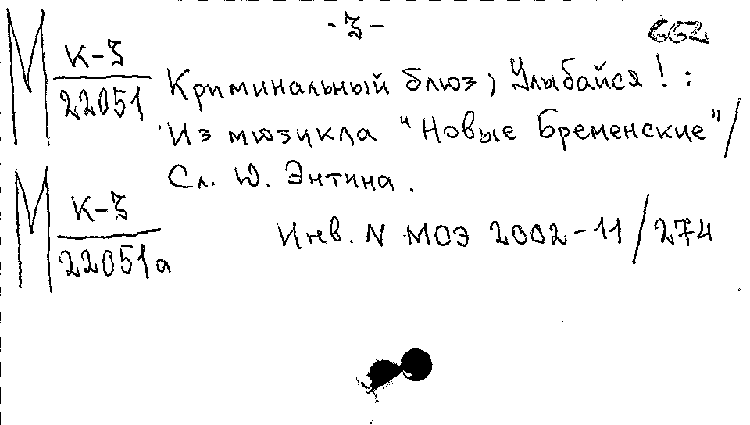 -3-
662
М К-3/22051
Криминальный блюз; Улыбайся! :
Из мюзикла "Новые Бременские"/
Сл. Ю. Энтина.
М К-3/22051а
Инв. N МОЭ 2002-11/274